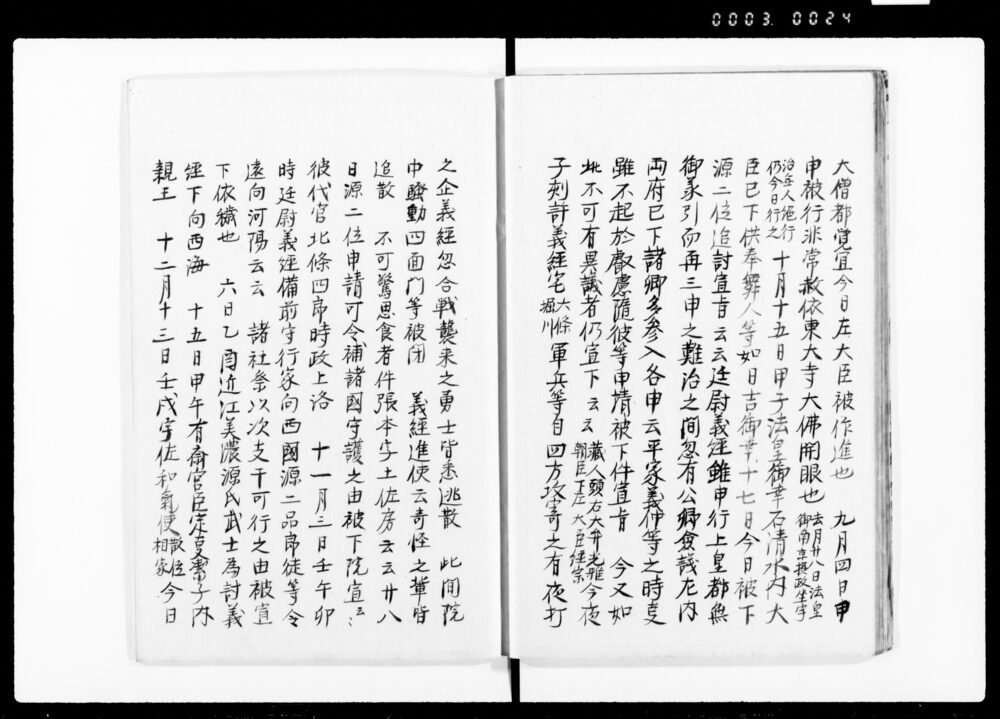 0003 0024
大僧都覚宜今日左大臣被作進也　九月四日申
申被行非常赦依東大寺大佛開眼也 去月廿八日法皇
御南京摂政生字
治無人絶行
仍今日行之 十月十五日甲子法皇御幸石清水内大
臣已下供奉舞人等如日吉御幸十七日今日被下
源二位追討宣旨云云廷尉義經雖申行上皇都無
御承引而再三申之難治之間忽有公卿僉議左内
両府已下諸卿多参入各申云平家義仲等之時更
雖不起於叡慮隨彼等申請被下件宣旨　今又如
此不可有異議者仍宣下云云 蔵人頭右大弁光雅
朝臣下左大臣經宗 今夜
子剋許義經宅 六條
堀川 軍兵等自四方攻寄之有夜打
之企義經忽合戦襲来之勇士皆悉逃散　此間院
中騒動四面門等被閉　義經進使云奇怪之輩皆
追散　不可驚思食者件張本字土佐房云云廿八
日源二位申請可令補諸國守護之由被下院宣云々
彼代官北條四郎時政上洛　十一月三日壬午卯
時廷尉義經備前守行家向西國源二品郎徒等令
遠向河陽云云　諸社祭以次支干可行之由被宣
下依穢也　六日乙酉近江美濃源氏武士為討義
經下向西海　十五日甲午有斎宮臣定夏潔子内
親王　十二月十三日壬戌宇佐和氣使 散位
相家 今日